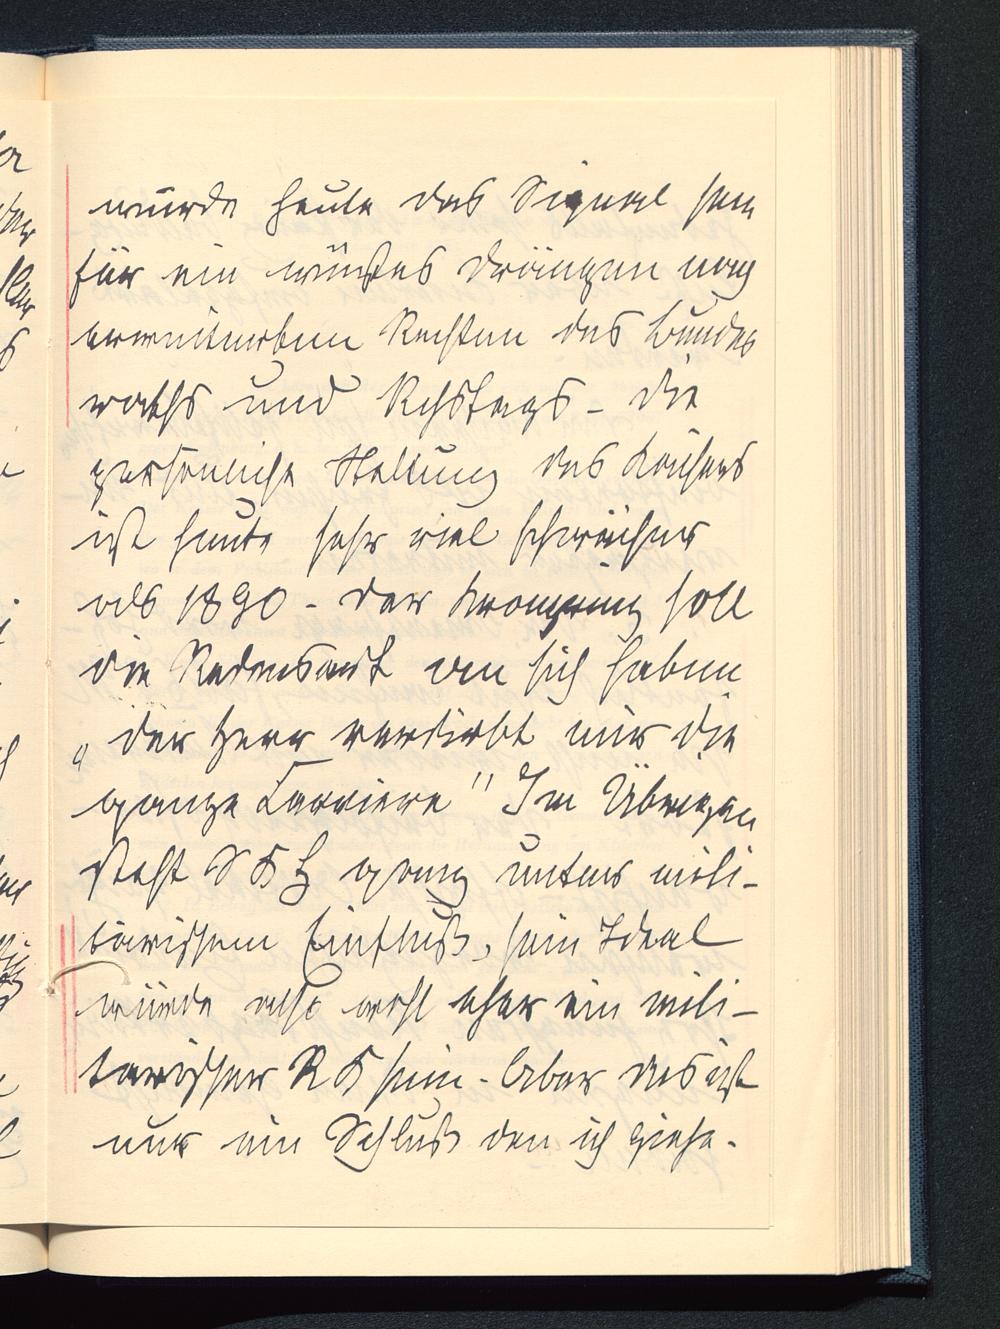 würde heute das Signal sein
für ein wüstes Drängen nach
erweiterten Rechten des Bundes
raths und Rchstags - Die
persönliche Stellung des Kaisers
ist heute sehr viel schwächer
als 1890 - Der Kronprinz soll
die Redensart an sich haben
„Der Herr verdirbt mir die
ganze Carriere" Im Übrigen
steht S K H ganz unter mili-
tärischem Einfluß, sein Ideal
würde also wohl eher ein mili-
tärischer R K sein. Aber das ist
nur ein Schluß den ich ziehe.